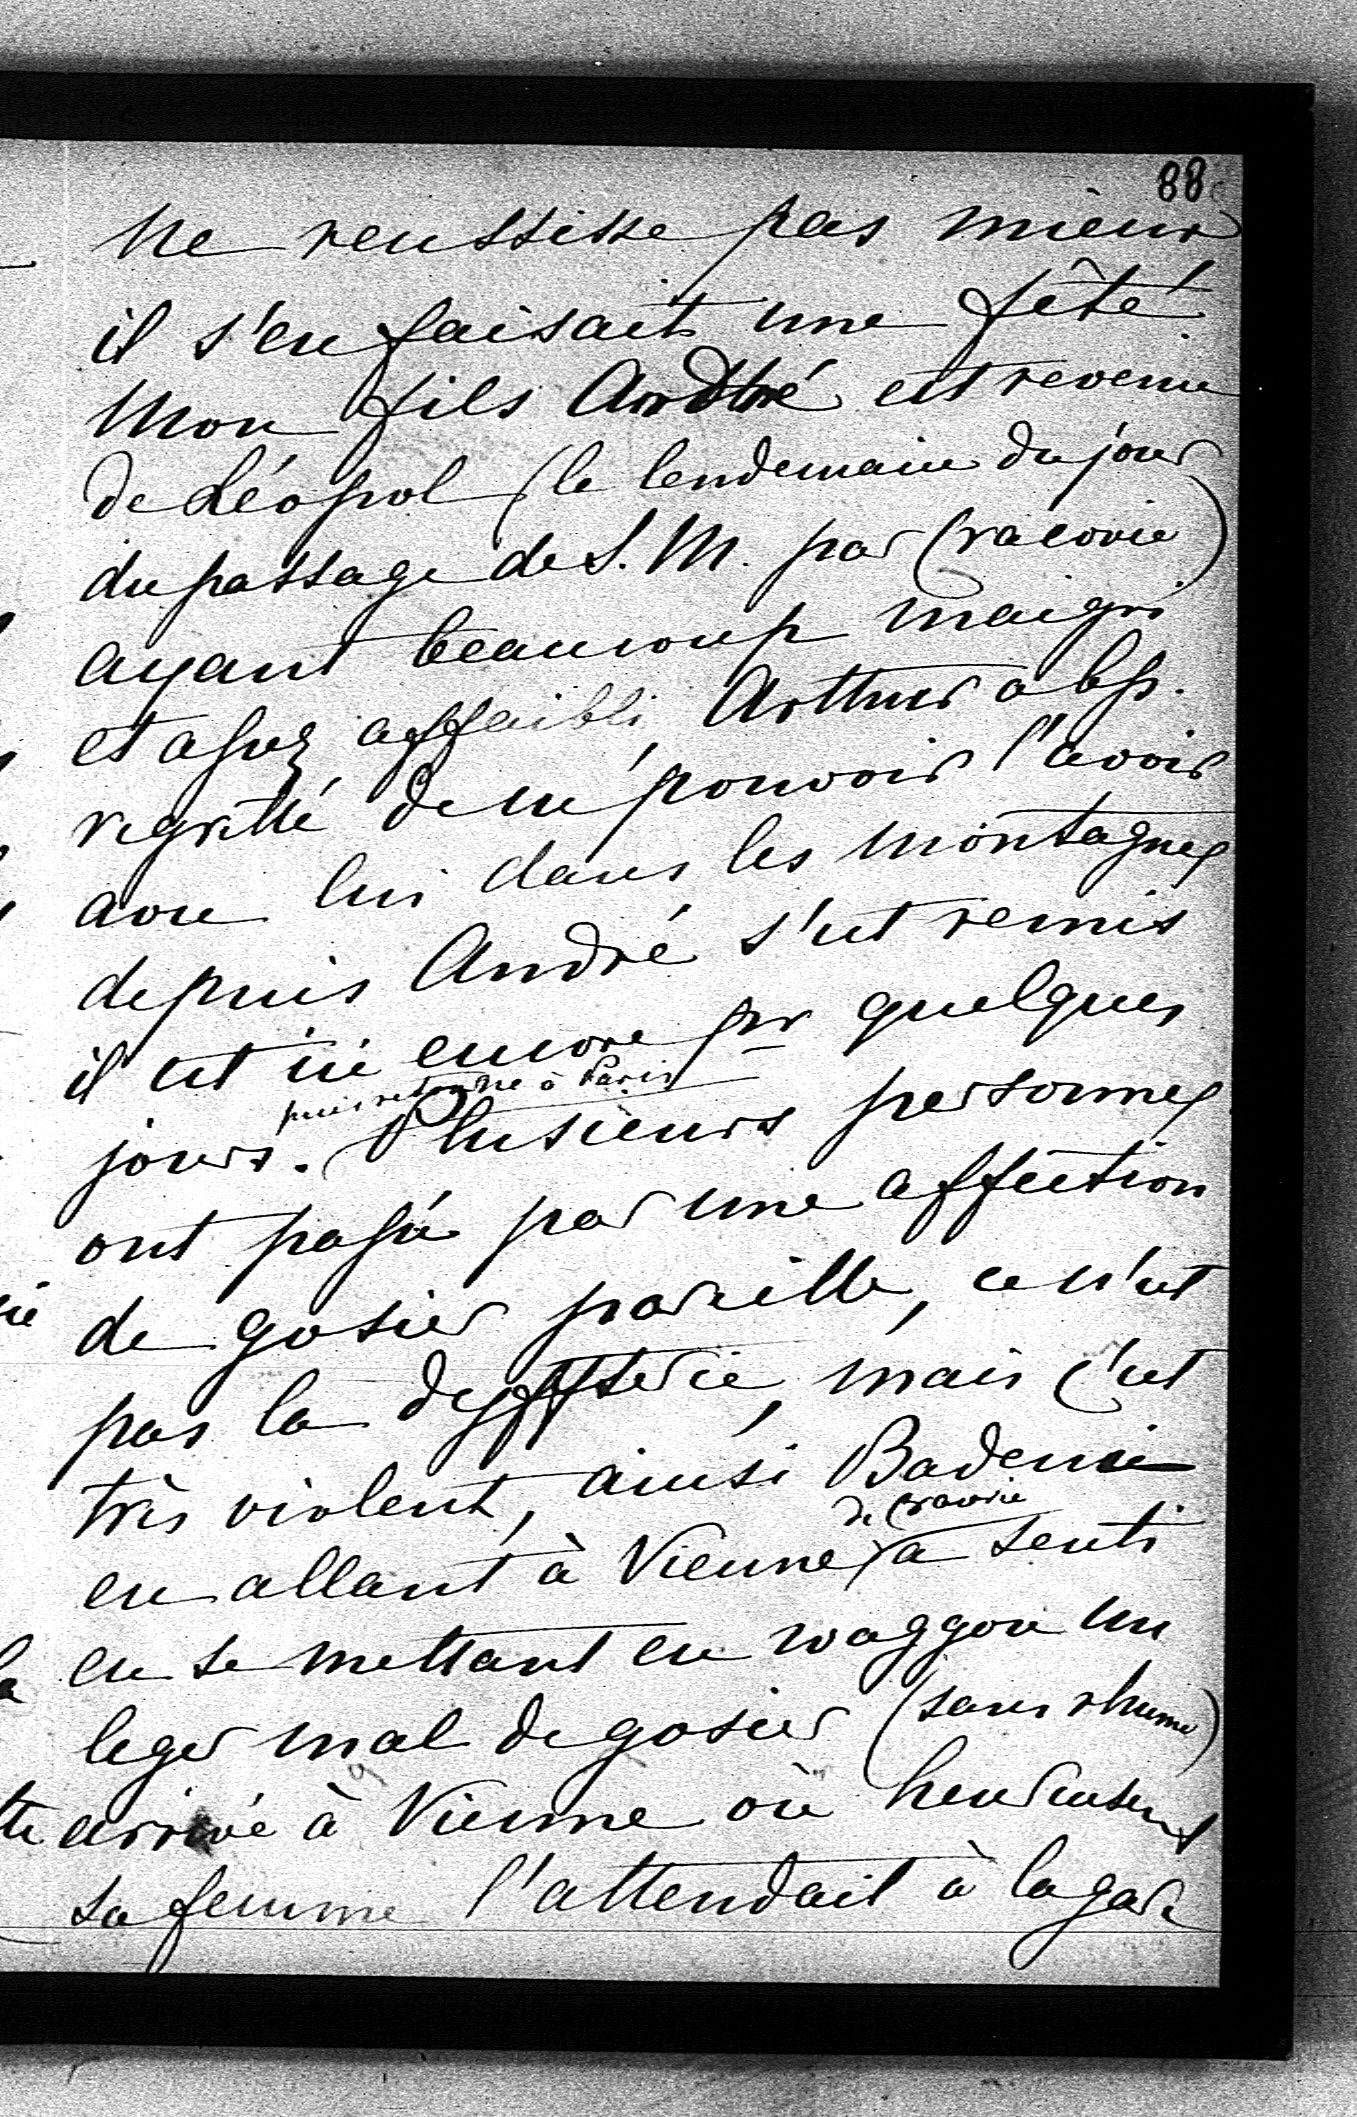 88
ne reussisse pas mieux
il s'en faisait une fête
Mon fils André est revenu
de Léopol (le lendemain du jour
du passage de S. M. par Cracovie)
ayant beaucoup maigri
et assez affaibli, Arthur a bp.
regretté de ne pouvoir l'avoir
avec lui dans les montagnes
depuis André s'est remis
il est ici encore pr quelques
puis retourne à Paris
jours. Plusieurs personnes
ont passé par une affection
de gosier pareille, ce n'est
pas la dyffterie, mais c'est
très violent, ainsi Badeni
de Cracovie
en allant à Vienne a senti
en se mettant en waggon un
leger mal de gosier (sans rhume)
arrivé à Vienne où heureusement
sa femme l'attendait à la gare